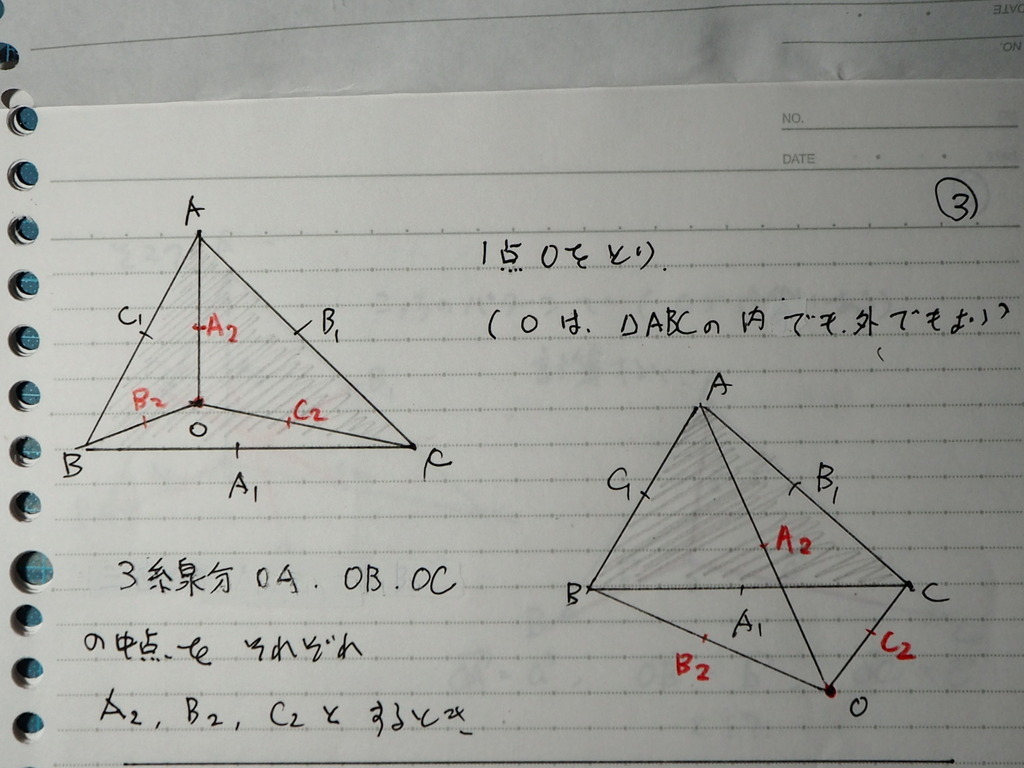 NO.
DATE
③
1点Oをとり.
(Oは、△ABCの内でも.外でもよい)
A
C₁
A₂
B₁
B₂
C₂
O
B
A₁
C
A
C₁
B₁
A₂
B
C
A₁
C₂
B₂
O
3線分OA.OB.OC
の中点をそれぞれ
A₂, B₂, C₂とするとき